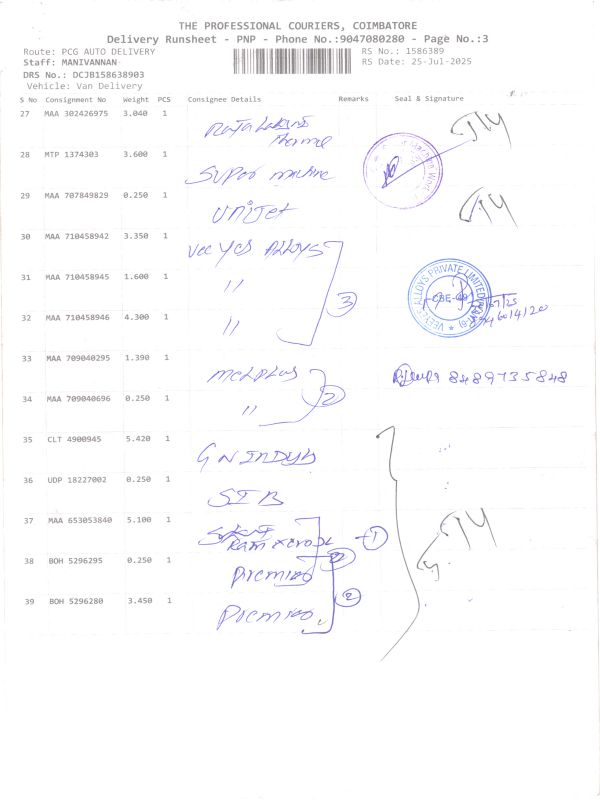 THE PROFESSIONAL COURIERS, COIMBATORE
Delivery Runsheet - PNP - Phone No.:9047080280 - Page No.:3
Route: PCG AUTO DELIVERY RS No.: 1586389
Staff: MANIVANNAN RS Date: 25-Jul-2025
DRS No.: DCJB158638903
Vehicle: Van Delivery
S No Consignment No Weight PCS Consignee Details Remarks Seal & Signature
27 MAA 302426975 3.040 1
28 MTP 1374303 3.600 1 Super machine
29 MAA 707849829 0.250 1 Unijet
30 MAA 710458942 3.350 1 Vee Yes Alloys
31 MAA 710458945 1.600 1 "
3
VEEYES ALLOYS PRIVATE LIMITED
CBE-49
32 MAA 710458946 4.300 1 "
33 MAA 709040295 1.390 1 8489735848
2
34 MAA 709040696 0.250 1 "
35 CLT 4900945 5.420 1 GN
36 UDP 18227002 0.250 1 SIB
37 MAA 653053840 5.100 1
Ram 1
38 BOH 5296295 0.250 1 Premier
2
39 BOH 5296280 3.450 1 Premier